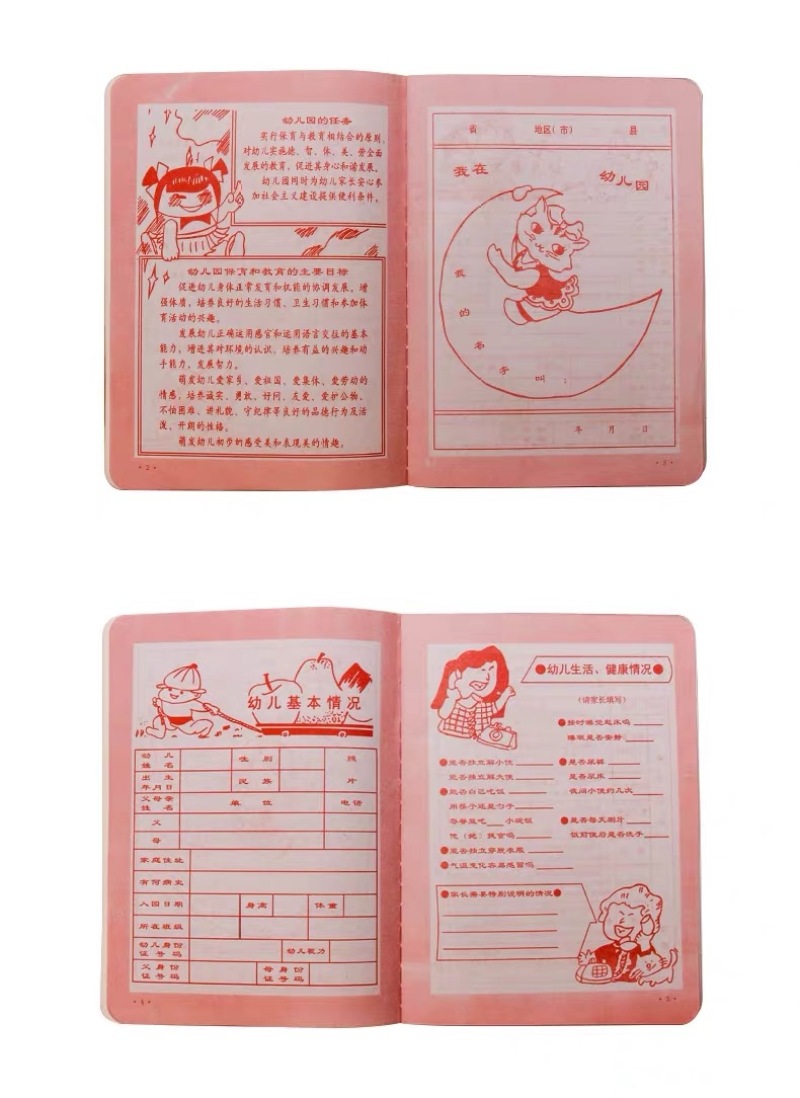 幼儿园的任务
实行保育与教育相结合的原则,
对幼儿实施德、智、体、美、劳全面
发展的教育,促进其身心和谐发展。
幼儿园同时为幼儿家长安心参
加社会主义建设提供便利条件。
幼儿园保育和教育的主要目标
促进幼儿身体正常发育和机能的协调发展,增
强体质,培养良好的生活习惯、卫生习惯和参加体
育活动的兴趣。
发展幼儿正确运用感官和运用语言交往的基本
能力,增进其对环境的认识,培养有益的兴趣和动
手能力,发展智力。
萌发幼儿爱家乡、爱祖国、爱集体、爱劳动的
情感,培养诚实、勇敢、好问、友爱、爱护公物、
不怕困难、讲礼貌、守纪律等良好的品德行为及活
泼、开朗的性格。
萌发幼儿初步的感受美和表现美的情趣。
·2·
省 地区(市) 县
我在 幼儿园
我的名字叫:
年 月 日
·3·
幼儿基本情况
幼儿姓名 性别 照片
出生年月日 民族
父母亲姓名 单位 电话
父
母
家庭住址
有何病史
入园日期 身高 体重
所在班级
幼儿身份证号码 幼儿视力
父身份证号码 母身份证号码
·4·
●幼儿生活、健康情况●
(请家长填写)
●按时睡觉起床吗
睡眠是否安静
●能否独立解小便
能否独立解大便
●是否尿裤
是否尿床
夜间小便约几次
●能否自己吃饭
用筷子还是勺子
每餐能吃 小碗饭
他(她)挑食吗
●是否每天刷牙
饭前便后是否洗手
●能否独立穿脱衣服
●气温变化容易感冒吗
●家长需要特别说明的情况●
·5·